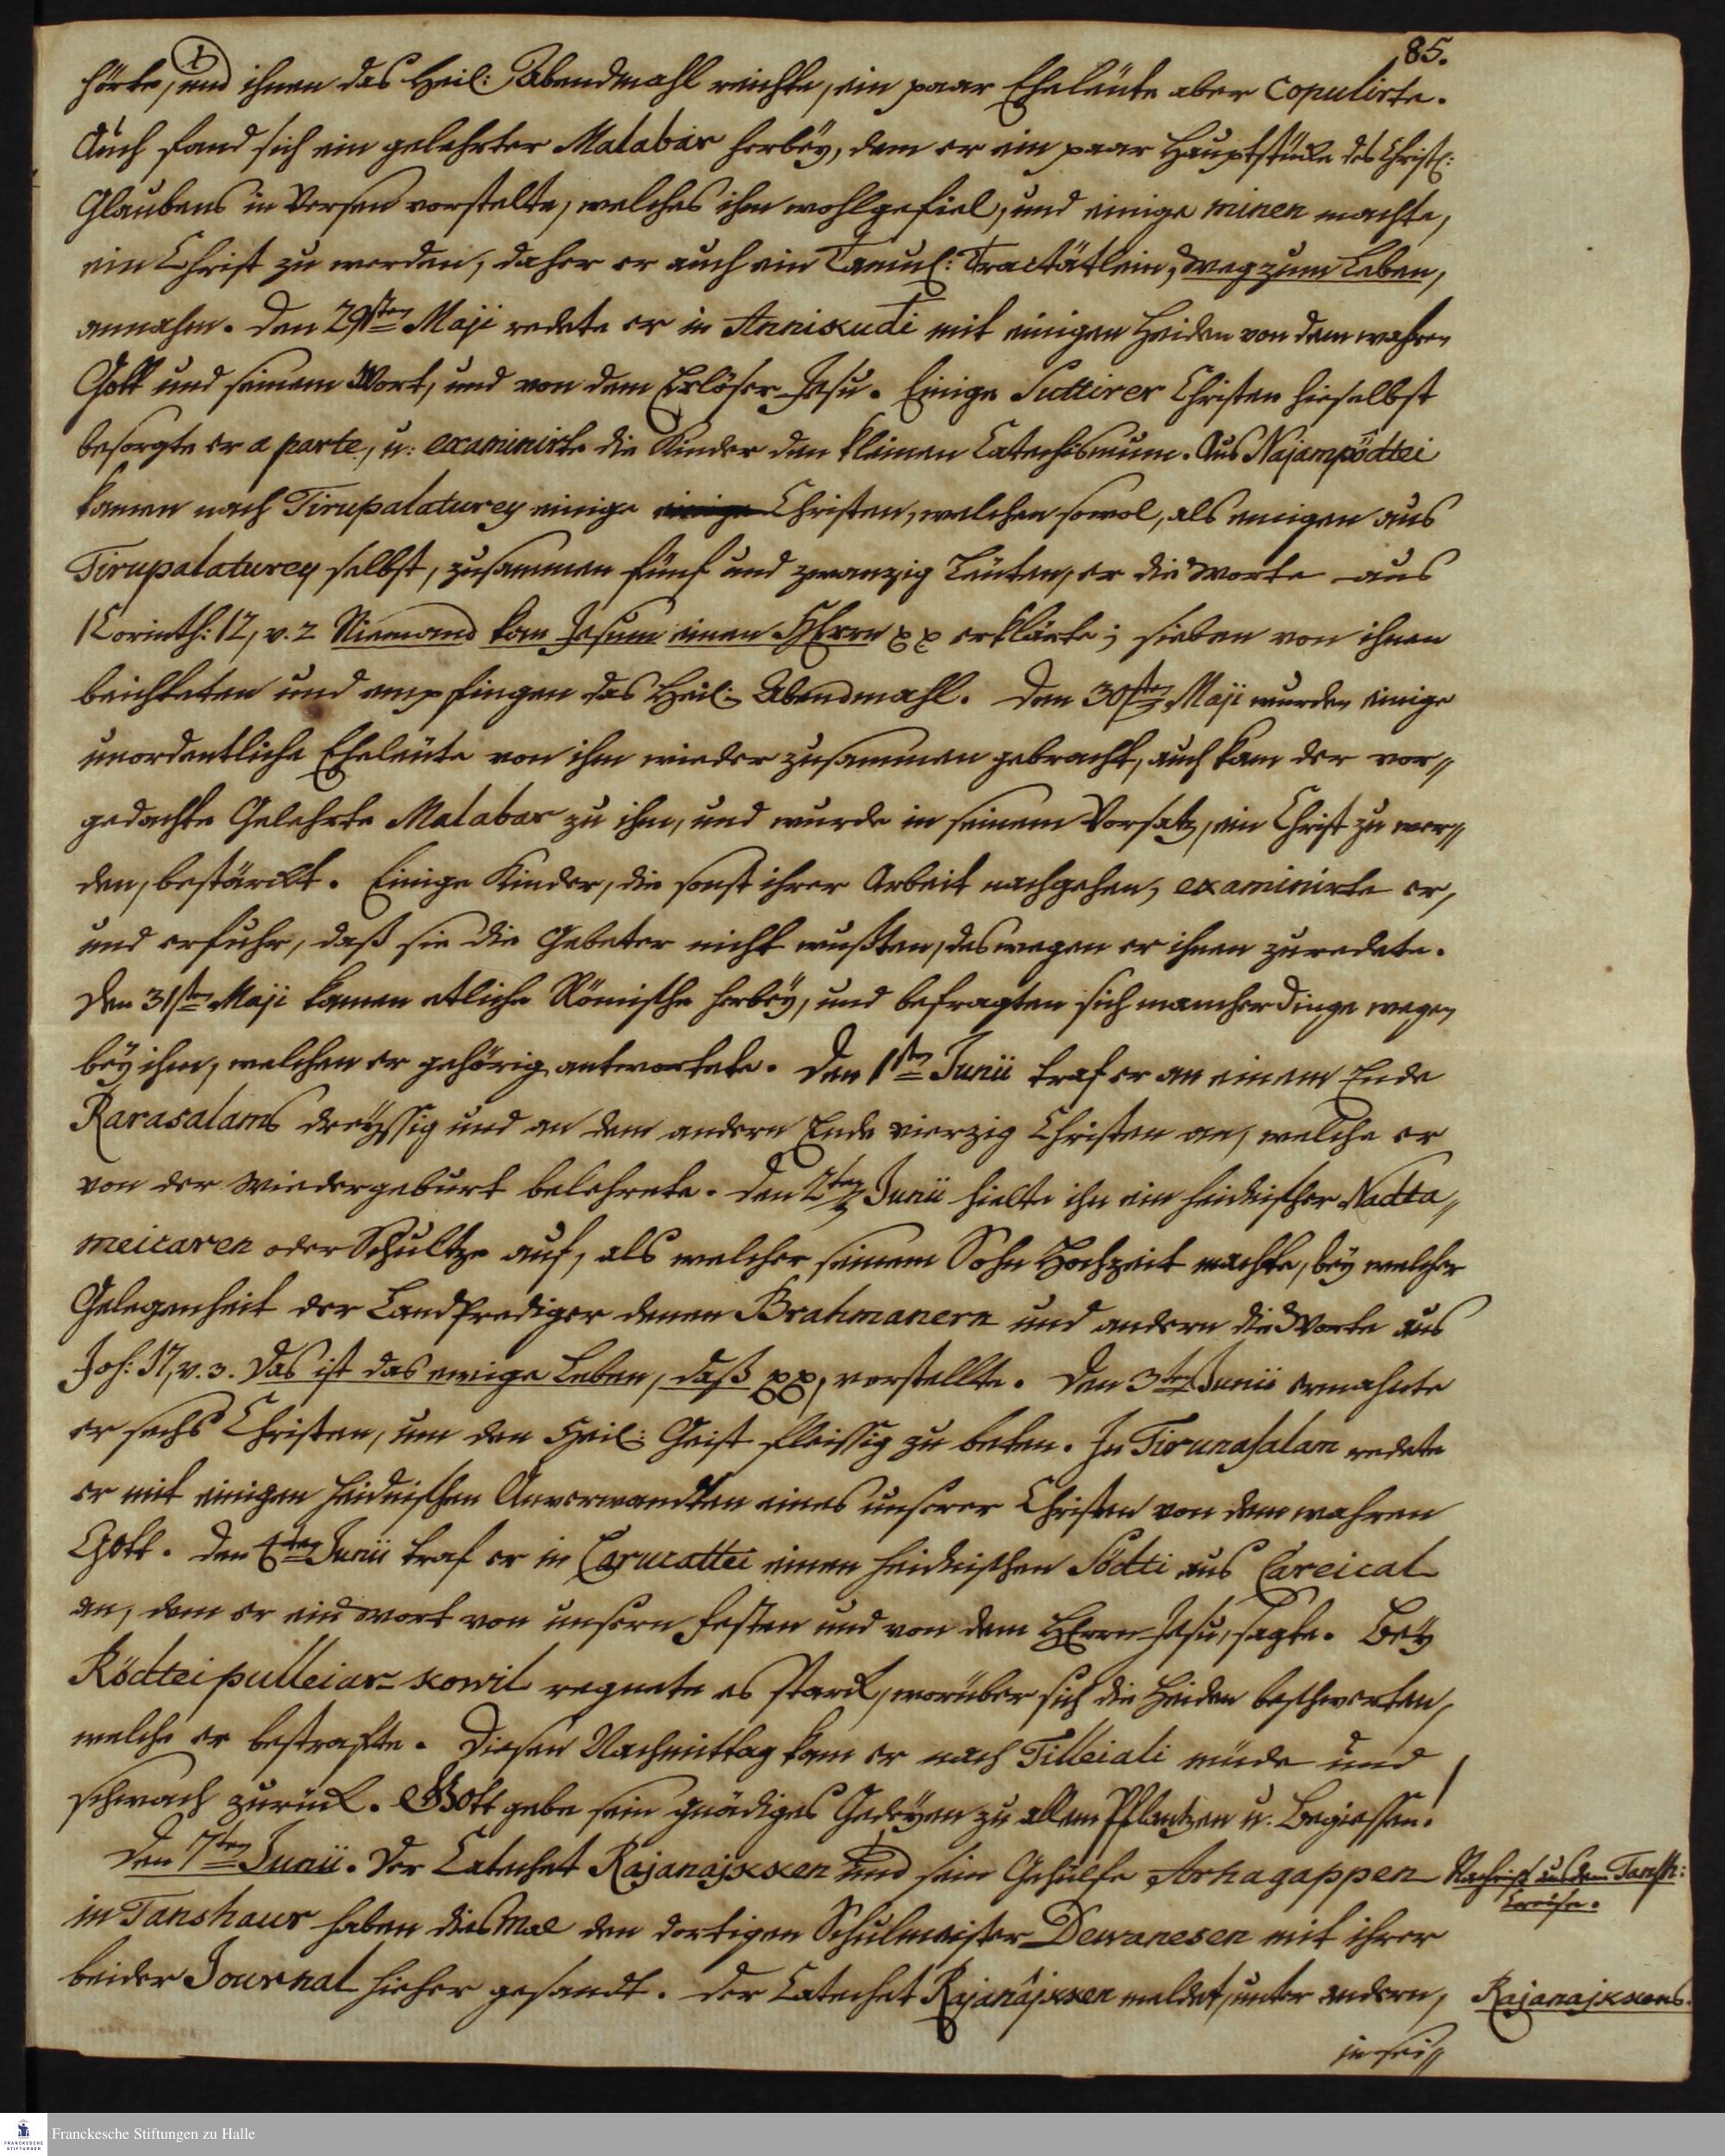 85.
hörte, und ihnen das Heil: Abendmahl reichte, ein paar Eheleüte aber copulirte.
Auch fand sich ein gelehrter Malabar herbey, dem er ein paar Hauptstücke des Christl:
Glaubens in Versen vorstelte, welches ihm wohlgefiel, und einige minen machte,
ein Christ zu werden, daher er auch ein Tamul: Tractätlein, Weg zum Leben,
annahm. Den 29sten Maji redete er in Annixudi mit einigen Heiden von dem wahren
Gott und seinem Wort, und von dem Erlöser Jesu. Einige Suttirer Christen hieselbst
besorgte er a parte, u: examinirte die Kinder den kleinen Catechismum. Aus Najampödtei
kamen nach Tirupalaturey einige einige Christen, welchen sowol, als einigen aus
Tirupalaturey selbst, zusammen fünf und zwanzig Leüten, er die Worte aus
1 Corinth: 12, v. 2 Niemand kan Jesum einen HErrn pp erklärte; sieben von ihnen
beichteten und empfingen das Heil: Abendmahl. Den 30sten Maji wurden einige
unordentliche Eheleüte von ihm wieder zusammen gebracht, auch kam der vor=
gedachte Gelehrte Malabar zu ihm, und wurde in seinem Vorsatz, ein Christ zu wer=
den, bestärckt. Einige Kinder, die sonst ihrer Arbeit nachgehen, examinirte er,
und erfuhr, daß sie die Gebeter nicht wußten, deswegen er ihnen zuredete.
Den 31sten Maji kamen etliche Römische herbey, und befragten sich mancher dinge wegen
bey ihm, welchen er gehörig antwortete. Den 1sten Junii traf er an einem Ende
Rarasalams dreyssig und an dem andern Ende vierzig Christen an, welche er
von der Wiedergeburt belehrete. Den 2ten Junii hielte ihn ein heidnischer Nadta=
meicaren oder Schultze auf, als welcher seinem Sohn Hochzeit machte, bey welcher
Gelegenheit der Landprediger denen Brahmanern und andern die Worte aus
Joh: 17, v. 3. Das ist das ewige Leben, daß pp, vorstellte. Den 3ten Junii ermahnte
er sechs Christen, um den Heil: Geist fleissig zu beten. In Tirunasalam redete
er mit einigen heidnischen Anverwandten eines unserer Christen von dem wahren
Gott. Den Junii traf er in Carucattei einen heidnischen Södti aus Careical
an, dem er ein Wort von unsern Festen und von dem HErrn Jesu, sagte. Bey
Ködteipulleiar-xowil regnete es starck, worüber sich die Heiden beschwerten,
welche er bestrafte. Diesen Nachmittag kam er nach Tilleiali müde und
schwach zurück. GOtt gebe sein gnädiges Gedeyen zu allem Pflantzen u. Begiessen!
Den 7ten Junii. Der Catechet Rajanajxxen und sein Gehülfe Arhagappen
in Tanshaur haben dies Mal den dortigen Schulmeister Dewanesen mit ihrer
beider Journal hieher gesandt. Der Catechet Rajanajxxen meldet, unter andern,
in sei=
Nachricht aus dem Tansh:
Creise.
Rajanajxxens
Franckesche Stiftungen zu Halle